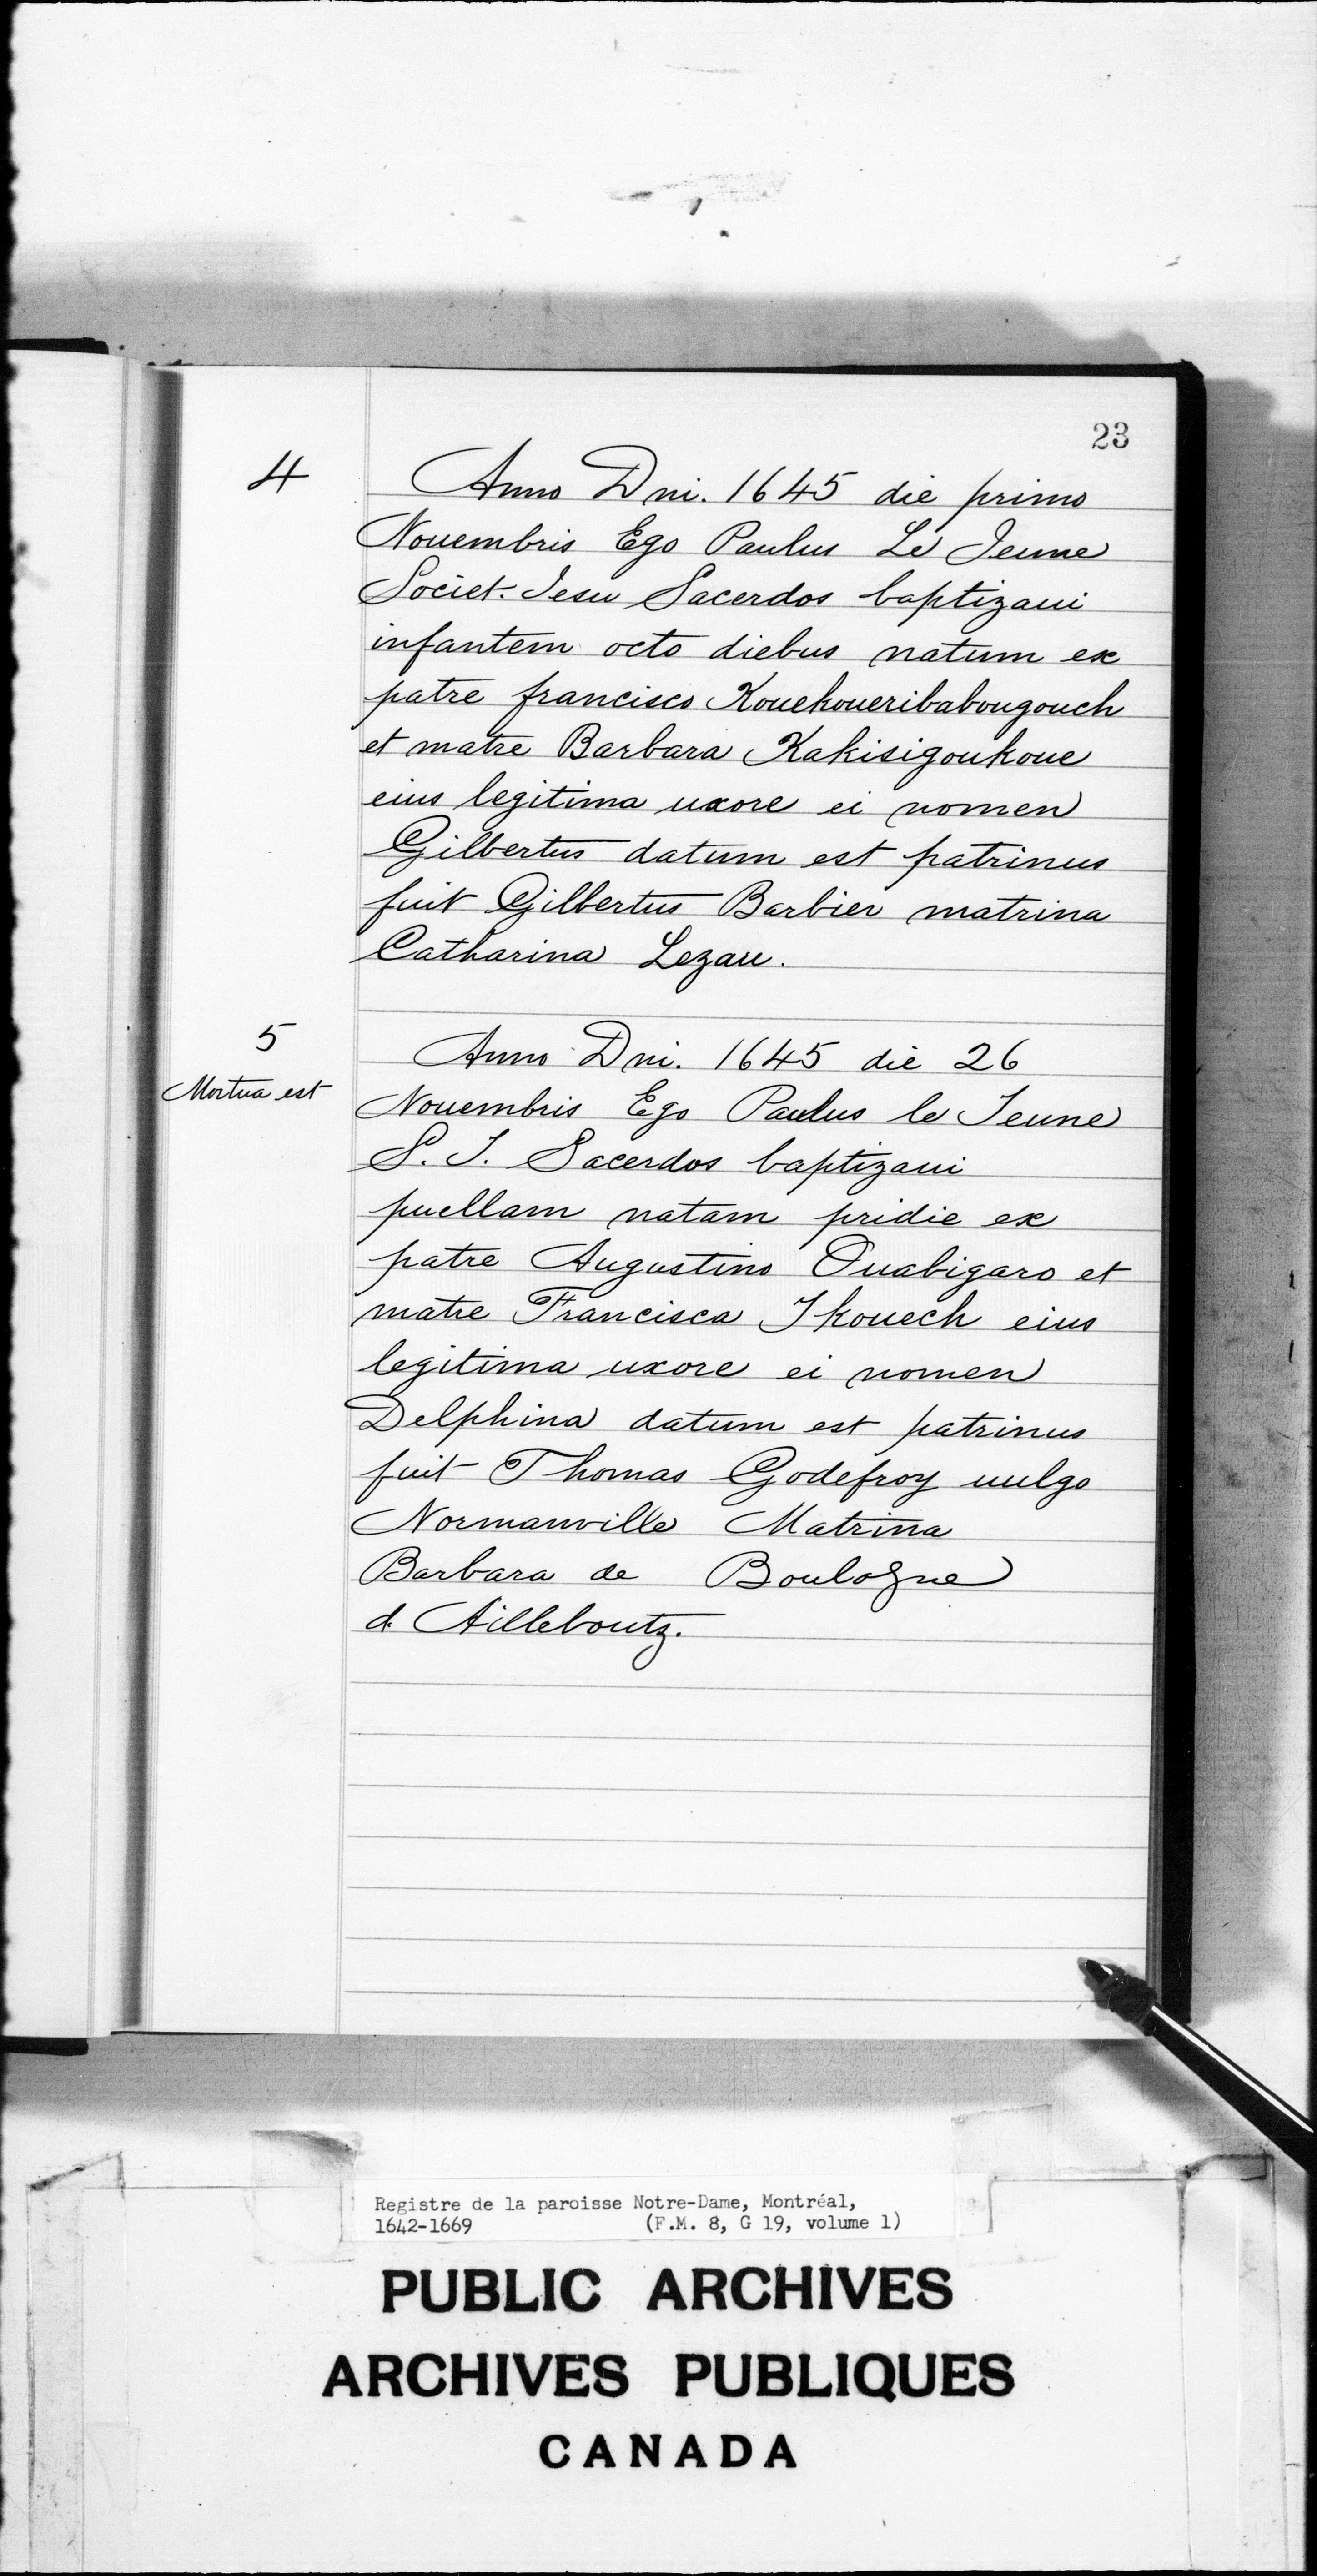 23
4
Anno Dni. 1645 die primo
Nouembris Ego Paulus Le Jeune
Societ. Iesu Sacerdos baptizaui
infantem octo diebus natum ex
patre francisco Kouekoueribabougouch
et matre Barbara Kakisigoukoue
eius legitima uxore ei nomen
Gilbertus datum est patrinus
fuit Gilbertus Barbier matrina
Catharina Lezau.
5
Mortua est
Anno Dni. 1645 die 26
Nouembris Ego Paulus le Jeune
S. J. Sacerdos baptizaui
puellam natam pridie ex
patre Augustino Ouabigaro et
matre Francisca Ikouech eius
legitima uxore ei nomen
Delphina datum est patrinus
fuit Thomas Godefroy uulgo
Normanville Matrina
Barbara de Boulogne
d. Ailleboutz.
Registre de la paroisse Notre-Dame, Montréal,
1642-1669 (F.M. 8, G 19, volume 1)
PUBLIC ARCHIVES
ARCHIVES PUBLIQUES
CANADA